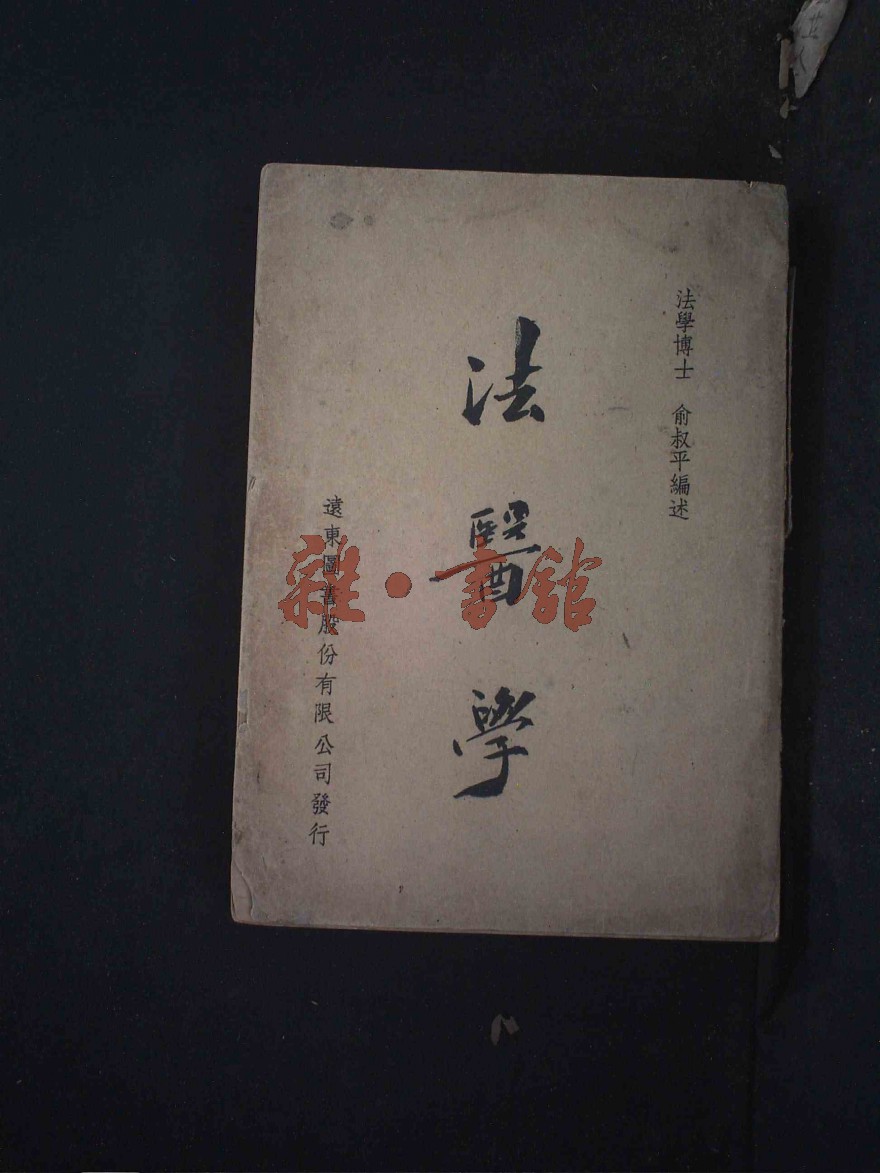 法學博士 俞叔平編述
法醫學
遠東圖書股份有限公司發行
雜·書館